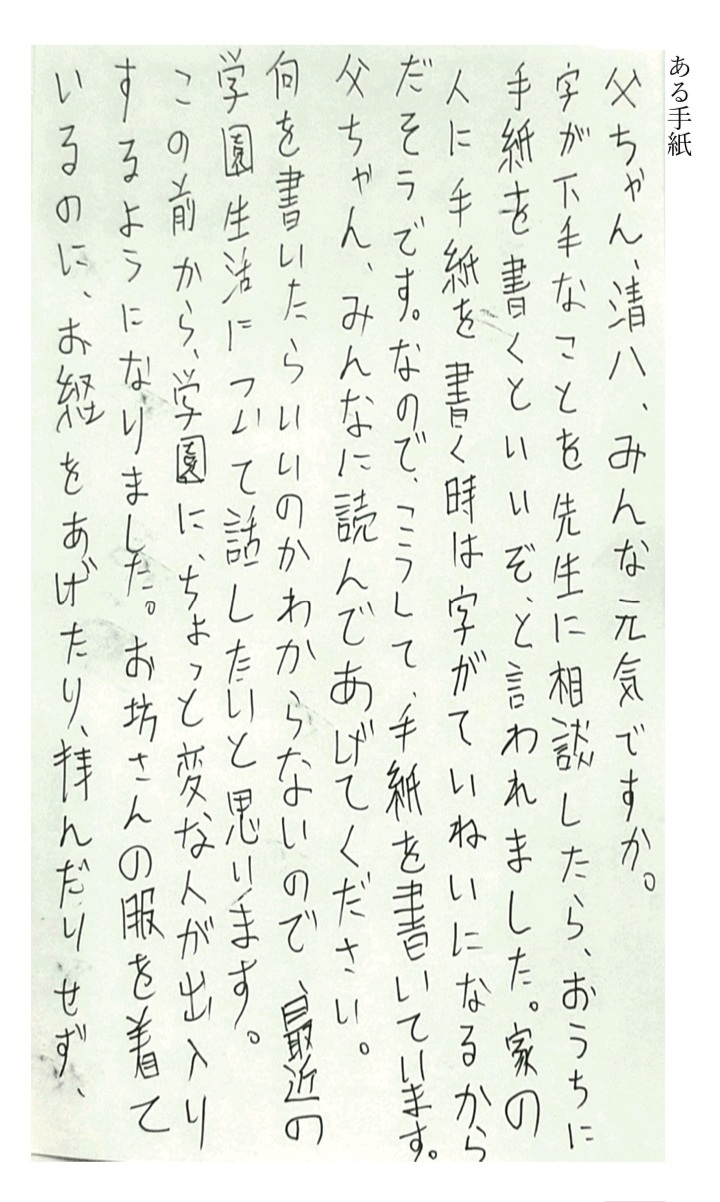 ある手紙
父ちゃん、清八、みんな元気ですか。
字が下手なことを先生に相談したら、おうちに
手紙を書くといいぞ、と言われました。家の
人に手紙を書く時は字がていねいになるから
だそうです。なので、こうして、手紙を書いています。
父ちゃん、みんなに読んであげてください。
何を書いたらいいのかわからないので、最近の
学園生活について話したいと思います。
この前から、学園に、ちょっと変な人が出入り
するようになりました。お坊さんの服を着て
いるのに、お経をあげたり、拝んだりせず、